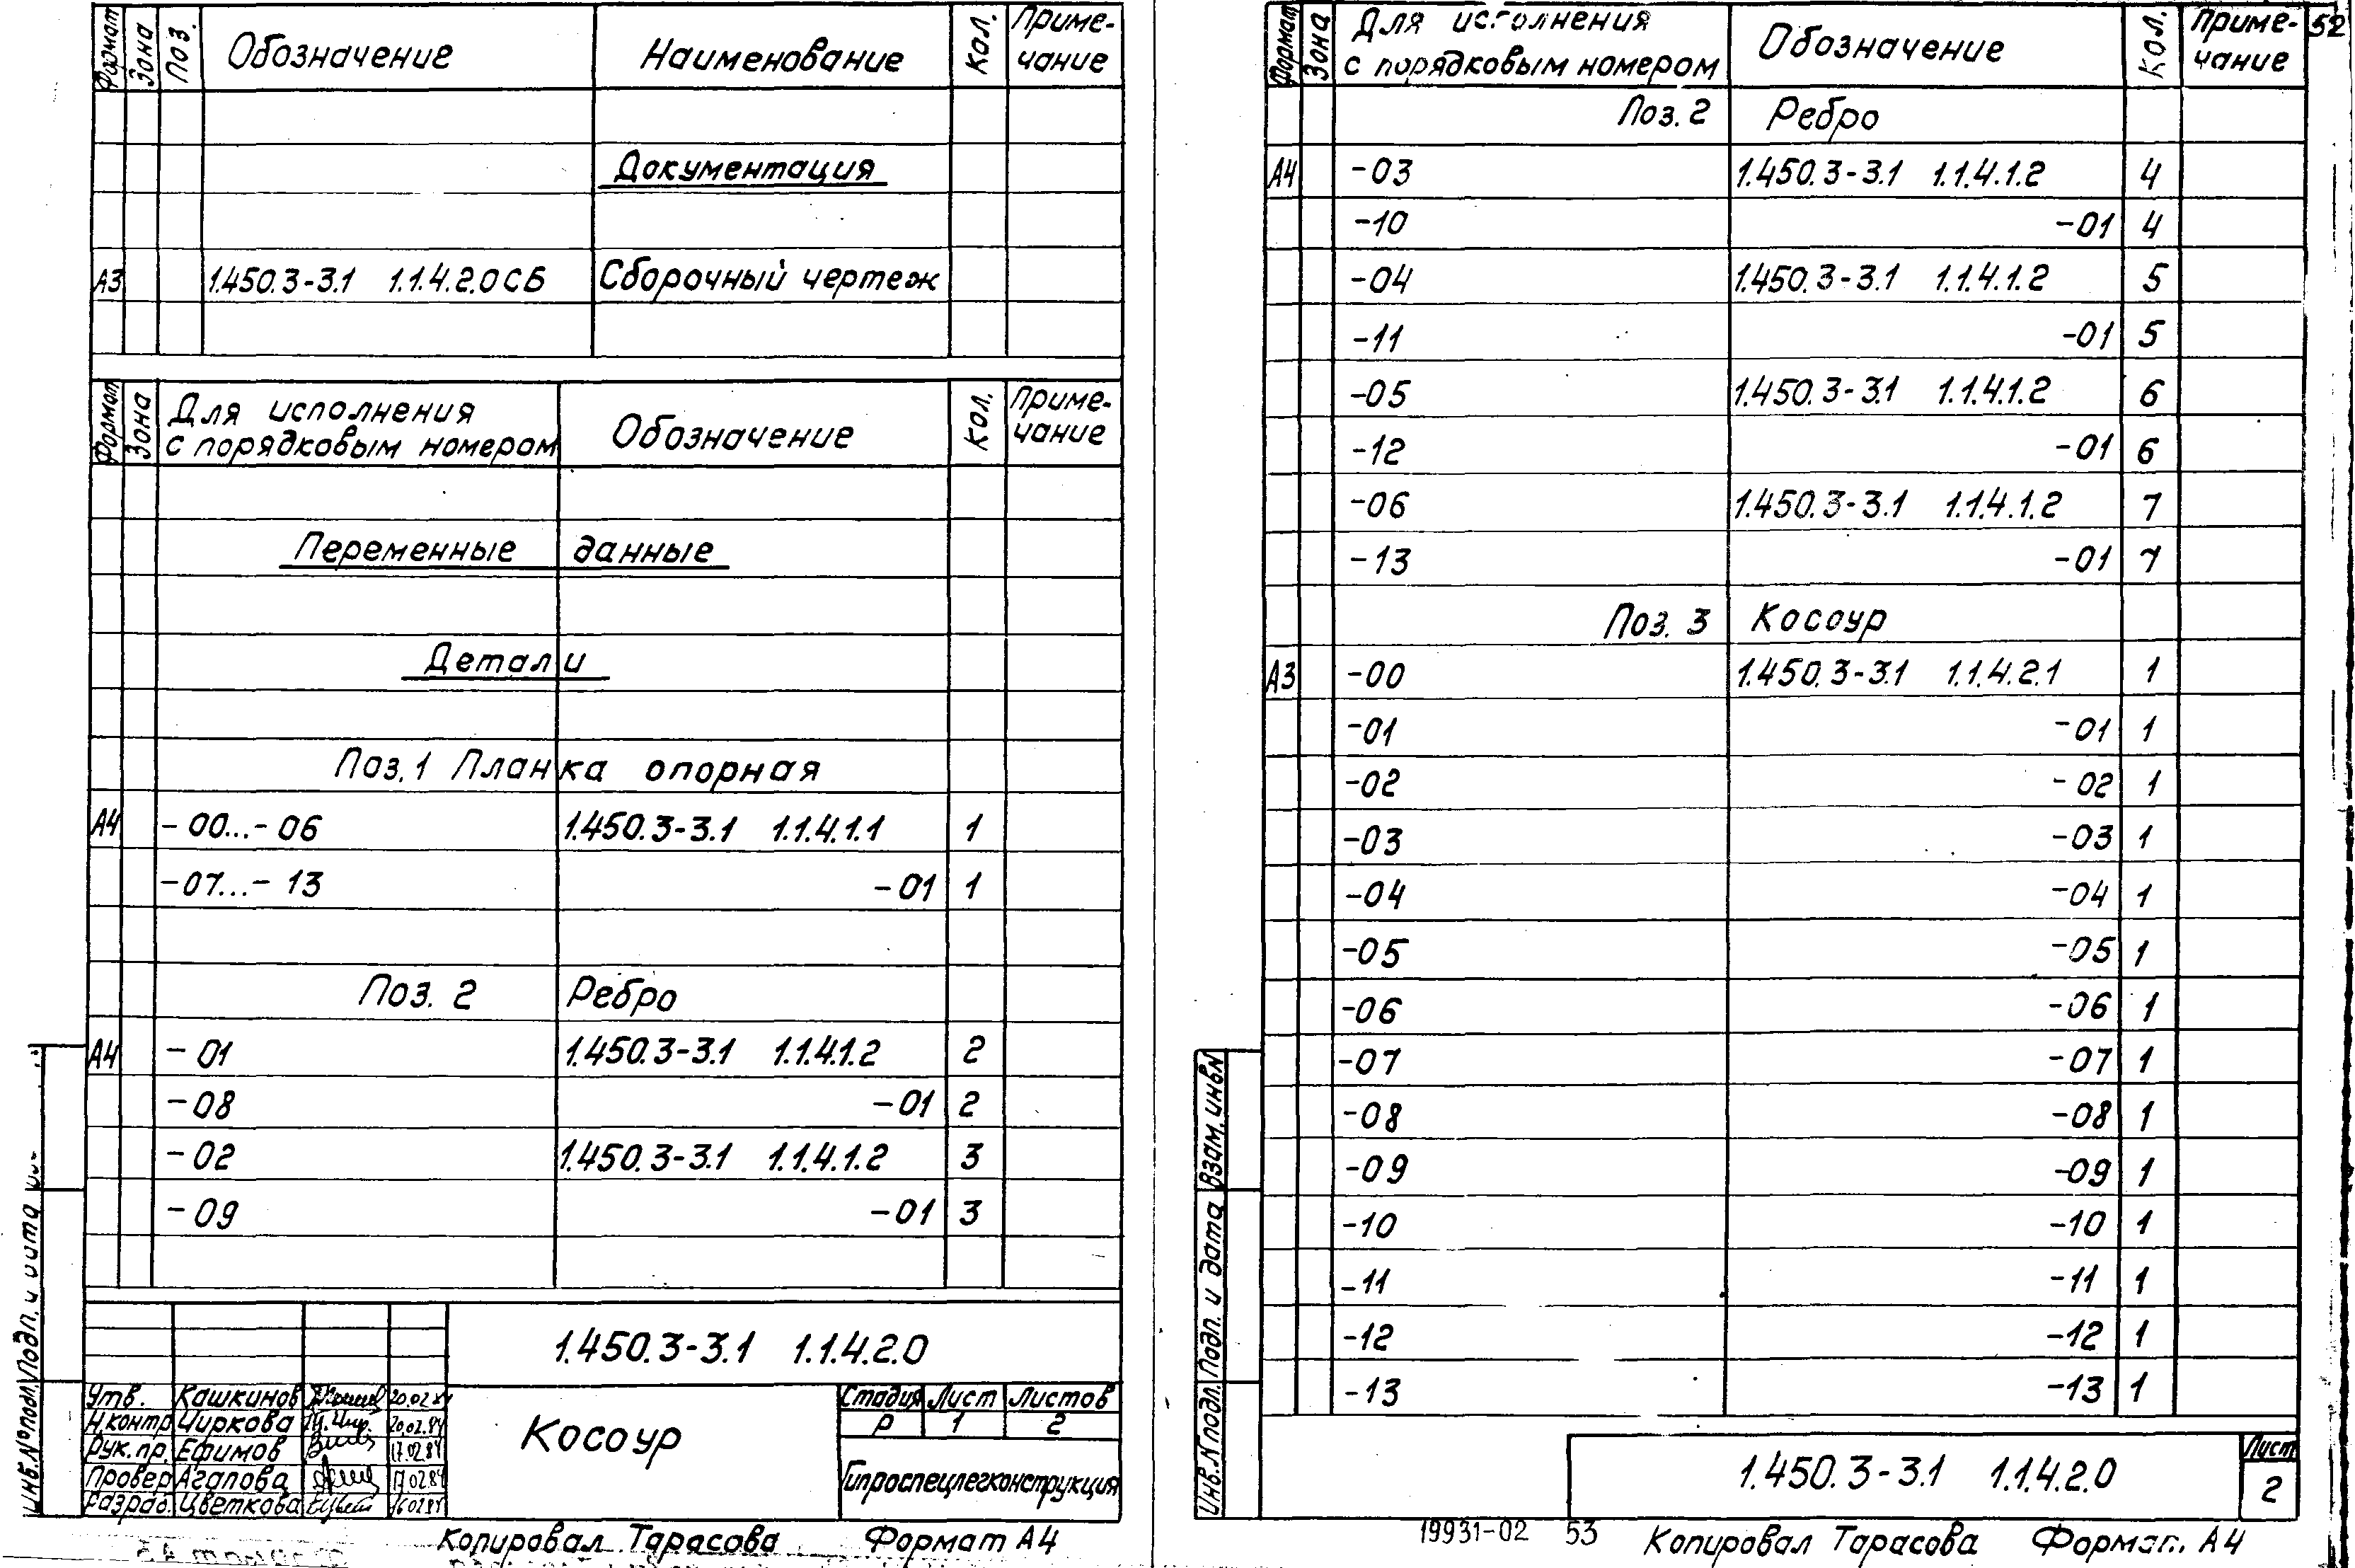 Формат Зона Поз. Обозначение Наименование Кол. Приме-
чание
Документация
А3 1.450.3-3.1 1.1.4.2.0 СБ Сборочный чертеж
Формат Зона Для исполнения
с порядковым номером Обозначение Кол. Приме-
чание
Переменные данные
Детали
Поз. 1 Планка опорная
А4 -00...-06 1.450.3-3.1 1.1.4.1.1 1
-07...-13 -01 1
Поз. 2 Ребро
А4 -01 1.450.3-3.1 1.1.4.1.2 2
-08 -01 2
-02 1.450.3-3.1 1.1.4.1.2 3
-09 -01 3
1.450.3-3.1 1.1.4.2.0
Утв. Кашкинов 20.02.84
Н.контр Чиркова 20.02.84
Рук.пр. Ефимов 17.02.84
Провер Агапова 17.02.84
Разраб. Цветкова 16.02.84
Косоур
Стадия Лист Листов
Р 1 2
Гипроспецлегконструкция
Инв.№подл. Подп. и дата
Копировал Тарасова Формат А4
52
Формат Зона Для исполнения
с порядковым номером Обозначение Кол. Приме-
чание
Поз. 2 Ребро
А4 -03 1.450.3-3.1 1.1.4.1.2 4
-10 -01 4
-04 1.450.3-3.1 1.1.4.1.2 5
-11 -01 5
-05 1.450.3-3.1 1.1.4.1.2 6
-12 -01 6
-06 1.450.3-3.1 1.1.4.1.2 7
-13 -01 7
Поз. 3 Косоур
А3 -00 1.450.3-3.1 1.1.4.2.1 1
-01 -01 1
-02 -02 1
-03 -03 1
-04 -04 1
-05 -05 1
-06 -06 1
-07 -07 1
-08 -08 1
-09 -09 1
-10 -10 1
-11 -11 1
-12 -12 1
-13 -13 1
Инв.№подл. Подп. и дата Взам.инв№
1.450.3-3.1 1.1.4.2.0
Лист
2
19931-02 53
Копировал Тарасова Формат А4